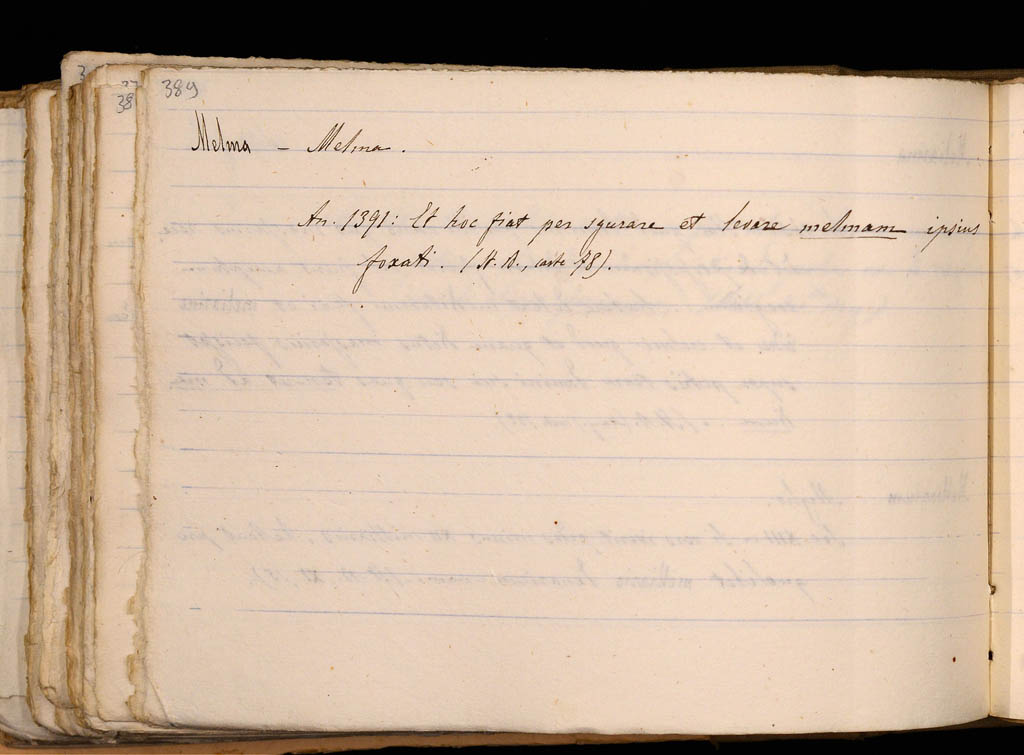 389
38
Melma - Melma.
An. 1391: Et hoc fiat per sgurare et levare melmam ipsius
foxati. (St. B., carte 78).